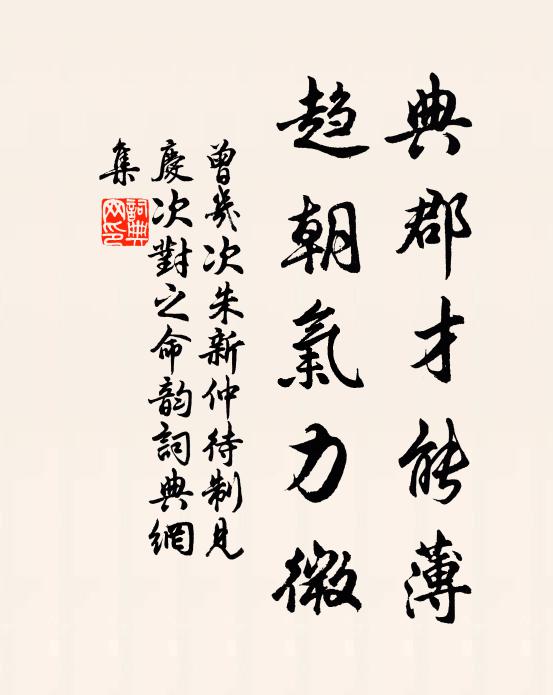 典郡才能薄
趋朝氣力微
曾幾次朱新仲待制見
慶次對之命韵詞典網
集
詞典
网印